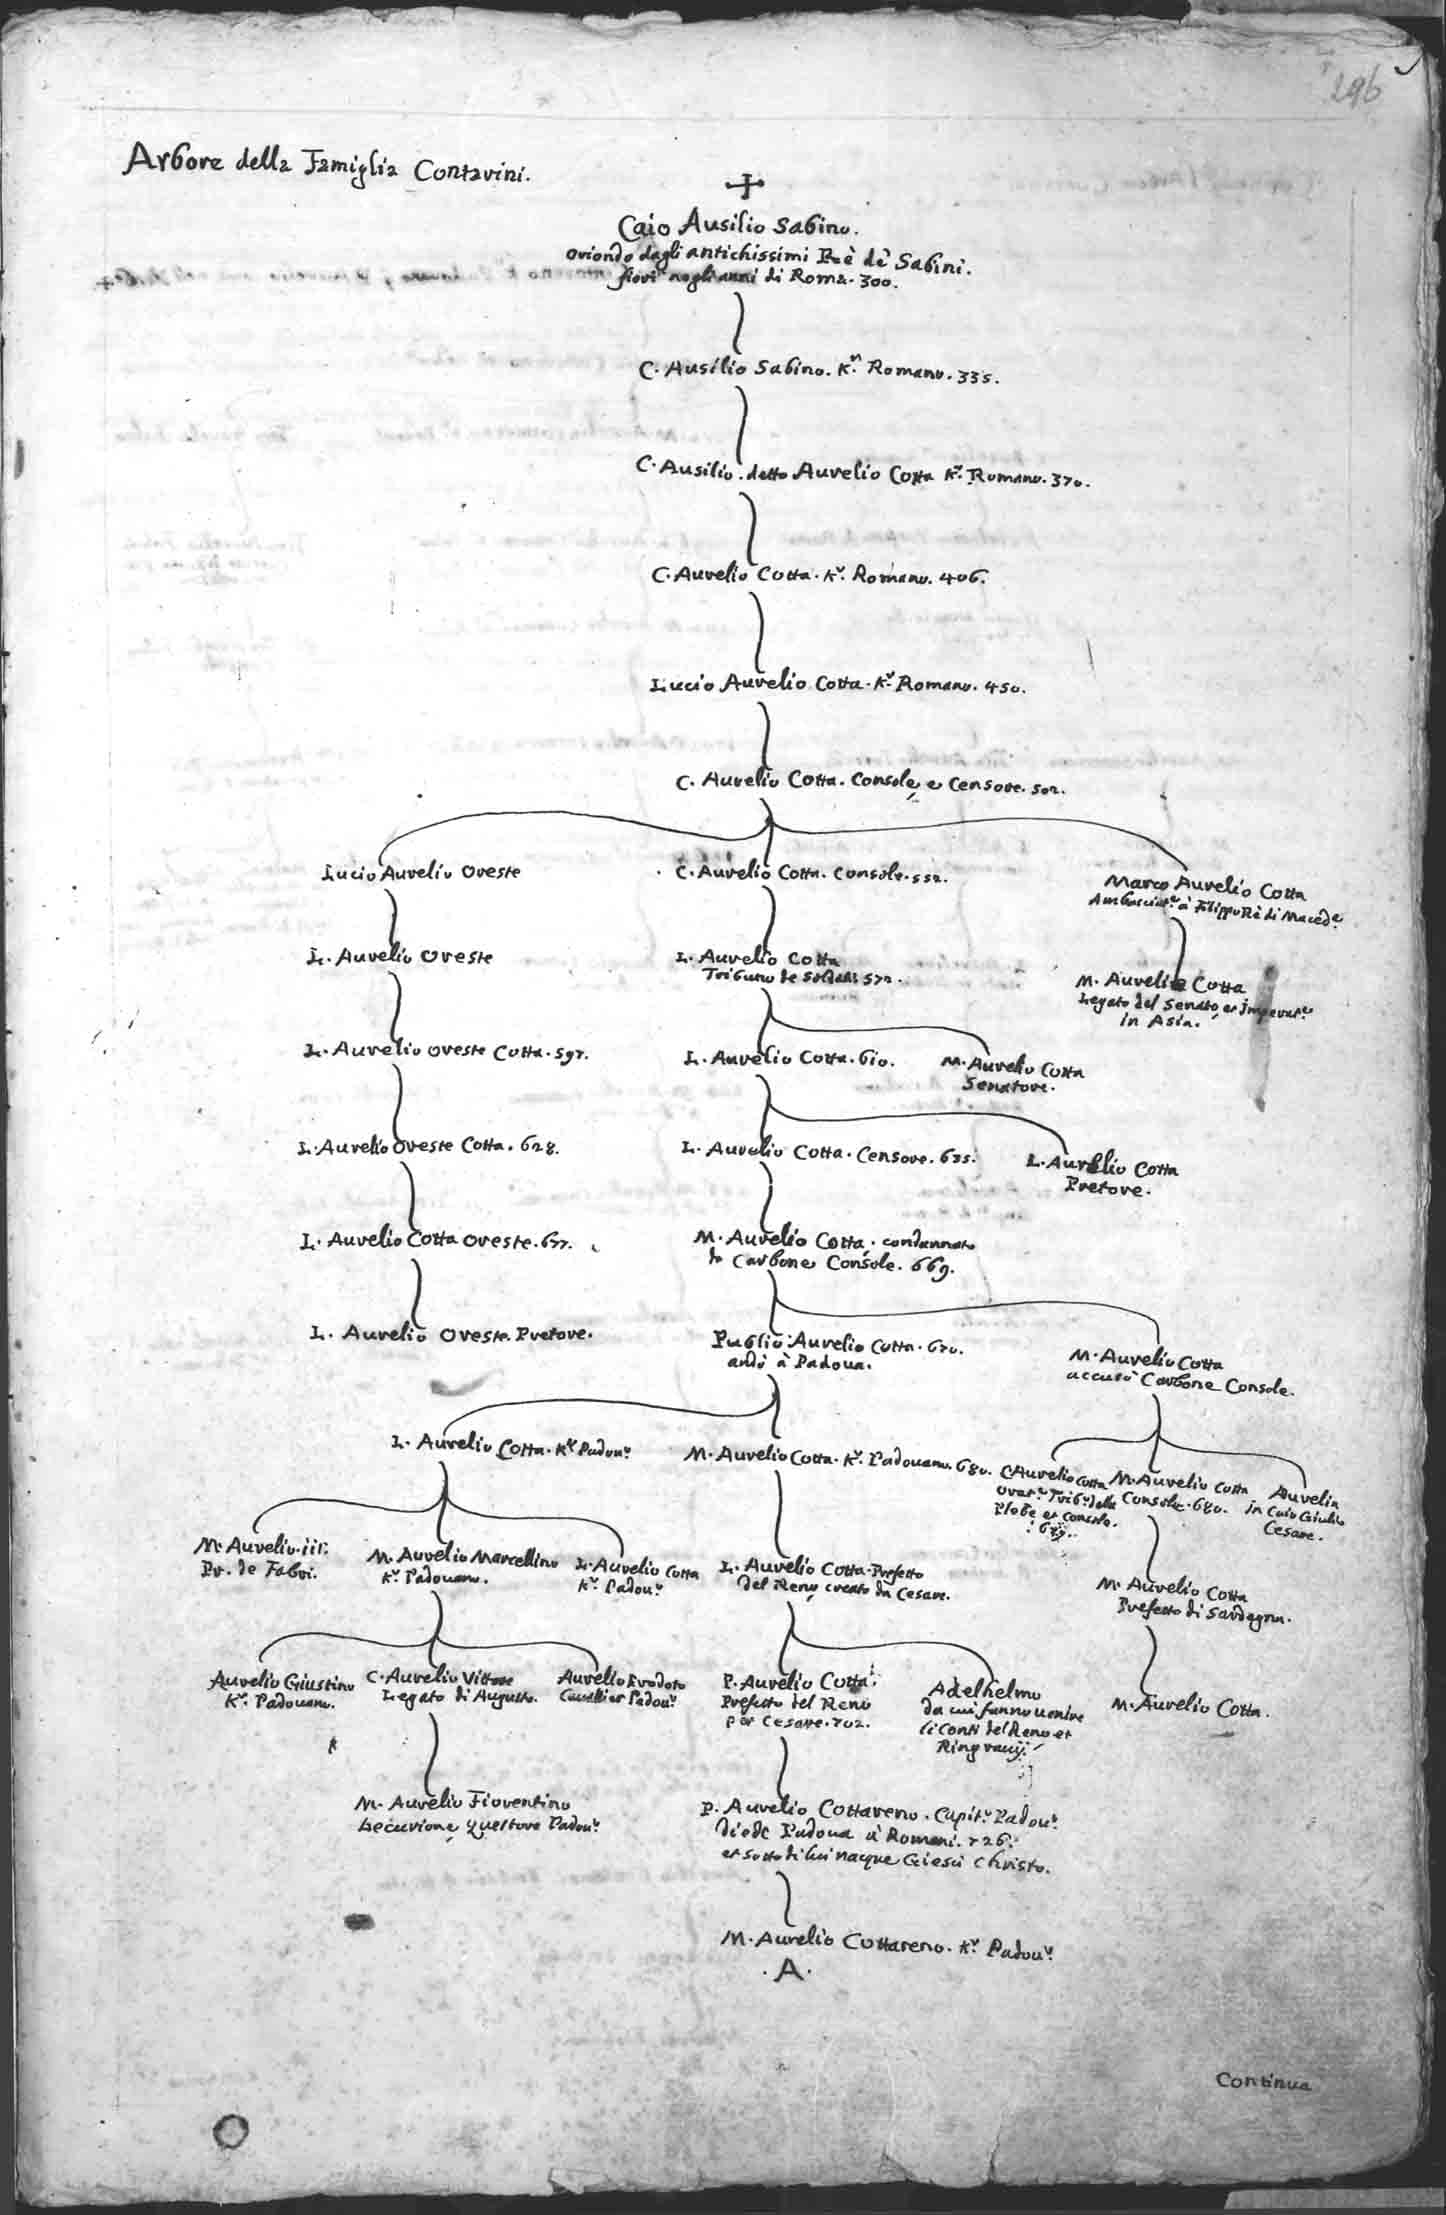 296
Arbore della Famiglia Contarini.
Caio Ausilio Sabino.
oriondo dagli antichissimi Rè dè Sabini.
fiorì negli anni di Roma. 300.
C. Ausilio Sabino. K.r Romano. 335.
C. Ausilio detto Aurelio Cotta K.r Romano. 370.
C. Aurelio Cotta. K.r Romano. 406.
Lucio Aurelio Cotta. K.r Romano. 450.
C. Aurelio Cotta. Console, e Censore. 502.
Lucio Aurelio Oreste
C. Aurelio Cotta. Console. 552.
Marco Aurelio Cotta
Ambasciat.re à Filippo Rè di Maced.a
L. Aurelio Oreste
L. Aurelio Cotta
Tribuno de Soldati 572.
M. Aurelio Cotta
Legato del Senato, et Imperat.re
in Asia.
L. Aurelio Oreste Cotta. 597.
L. Aurelio Cotta. 610.
M. Aurelio Cotta
Senatore.
L. Aurelio Oreste Cotta. 628.
L. Aurelio Cotta. Censore. 635.
L. Aurelio Cotta
Pretore.
L. Aurelio Cotta Oreste. 677.
M. Aurelio Cotta. condannato
da Carbone Console. 669.
L. Aurelio Oreste. Pretore.
Publio Aurelio Cotta. 670.
andò à Padoua.
M. Aurelio Cotta
accusò Carbone Console.
L. Aurelio Cotta. K.r Padou.o
M. Aurelio Cotta. K.r Padouano. 680.
C. Aurelio Cotta
Orat.re Trib.o della
Plebe et Console.
679.
M. Aurelio Cotta
Console. 680.
Aurelia
in Caio Giulio
Cesare.
M. Aurelio. iii.
Pr. de Fabri.
M. Aurelio Marcellino
K.r Padouano.
L. Aurelio Cotta
K.r Padou.o
L. Aurelio Cotta. Prefetto
del Reno, creato da Cesare.
M. Aurelio Cotta
Prefetto di Sardegna.
Aurelio Giustino
K.r Padouano.
C. Aurelio Vittore
Legato di Augusto.
Aurelio Erodoto
Cavallier Padou.o
P. Aurelio Cotta.
Prefetto del Reno
per Cesare. 702.
Adelhelmo
da cui fanno uenire
li Conti del Reno et
M. Aurelio Cotta.
M. Aurelio Fiorentino
Decurione, Questore Padou.o
P. Aurelio Cottareno. Capit.o Padou.o
diede Padoua à Romani. 726.
et sotto di lui nacque Giesù Christo.
M. Aurelio Cottareno. K.r Padou.o
. A .
Continua